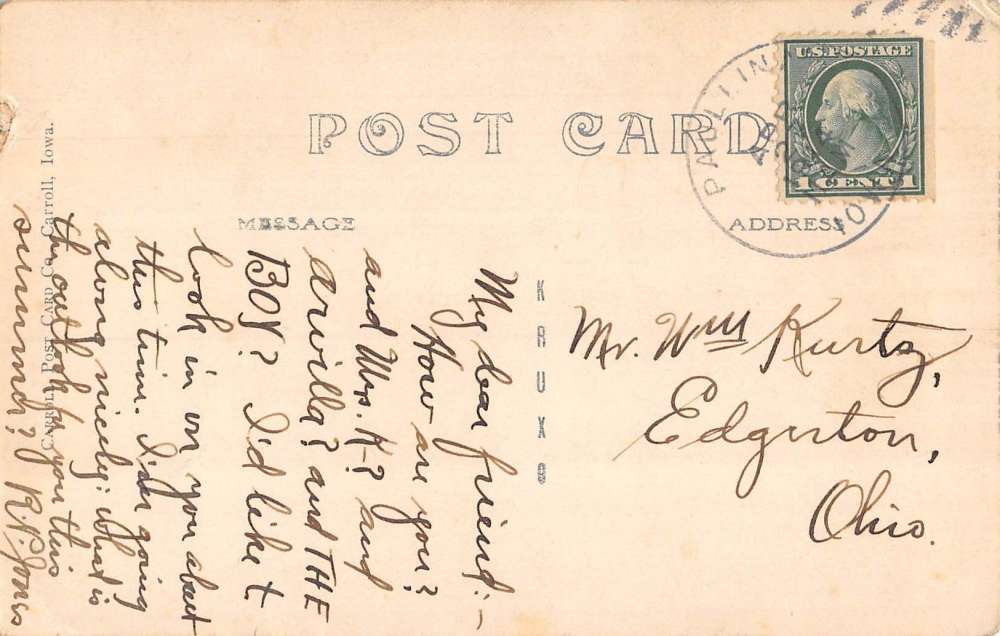 POST CARD
MESSAGE
ADDRESS
U.S. POSTAGE
1 CENT 1
PAULLINA
APR
IOWA
CARROLL POST CARD CO., Carroll, Iowa.
KRUXO
My dear friend:-
How are you?
and Mrs. K? and
arvilla? and THE
BOY? I'd like t
look in on you about
this time. I'm going
along nicely: what is
the outlook for you this
summer? R.N. Jones
Mr. Wm Kurtz,
Edgerton,
Ohio.